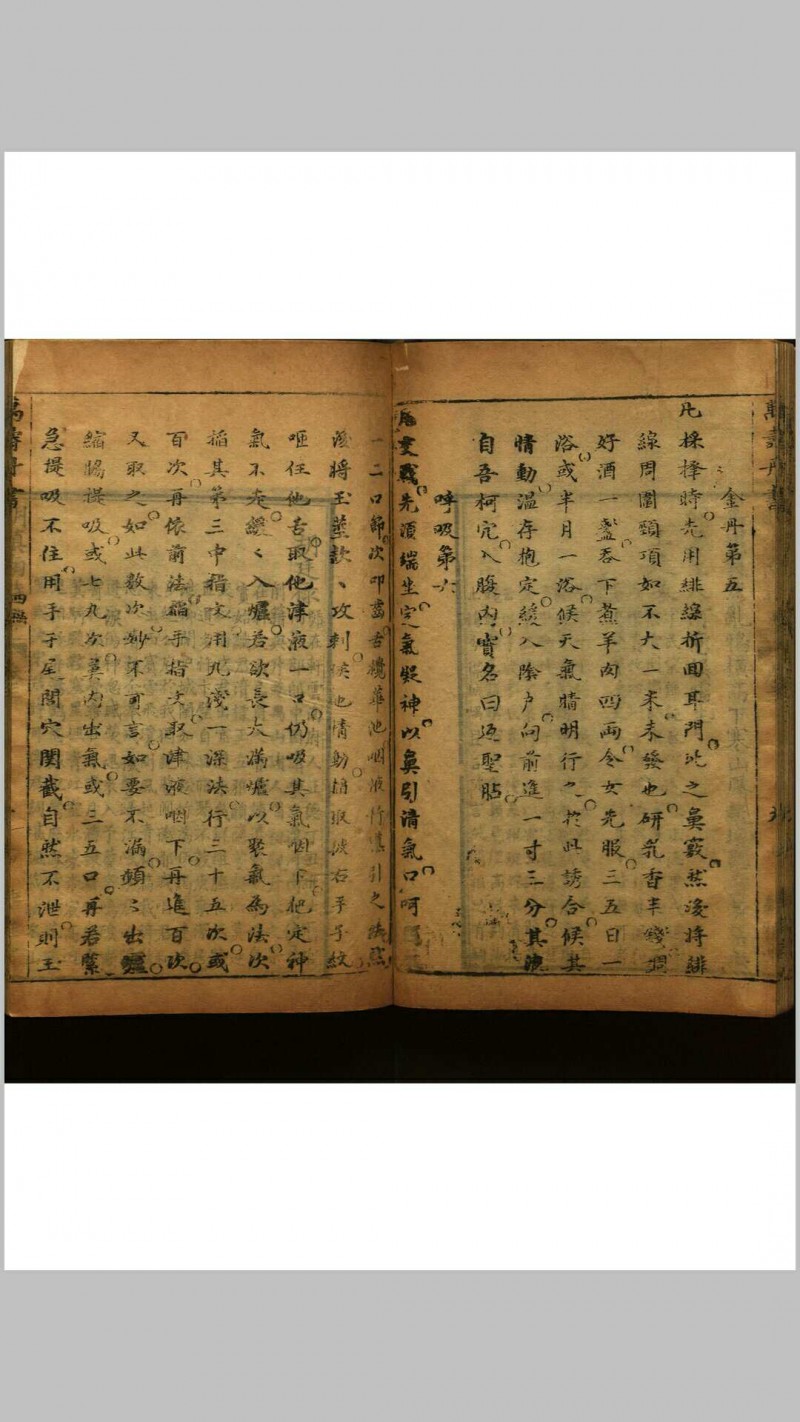 金丹第五
凡採擇時先用緋線折回耳門比之鼻竅然後將緋
線周圍頸項如不大一米未發也研乳香半錢調
好酒一盞吞下煮羊肉四兩令女先服三五日一
浴或半月一浴候天氣晴明行之於此誘合候其
情動溫存抱定緩入陰户向前進一寸三分其洩
自吾柯完入腹內實名曰返聖胎
呼吸第六
凡交戰先須端坐定氣凝神以鼻引清氣口呵
一二口節次叩齒舌攪華池咽液
後將玉莖款丶攻刺候他情動
咂住他舌取他津液一口仍吸其氣咽下把定神
氣不走緩丶入爐若欲長大滿爐以聚氣為法次
稻其第三中指文用九淺一深法行三十五次或
百次再依前法搯手指文取津液咽下再進百次
又取之如此數次妙不可言如要不漏頻丶出爐
縮腸提吸或七九次莫內出氣或三五口再若緊
急提吸不住用手于尾閭穴閉截自然不泄則玉